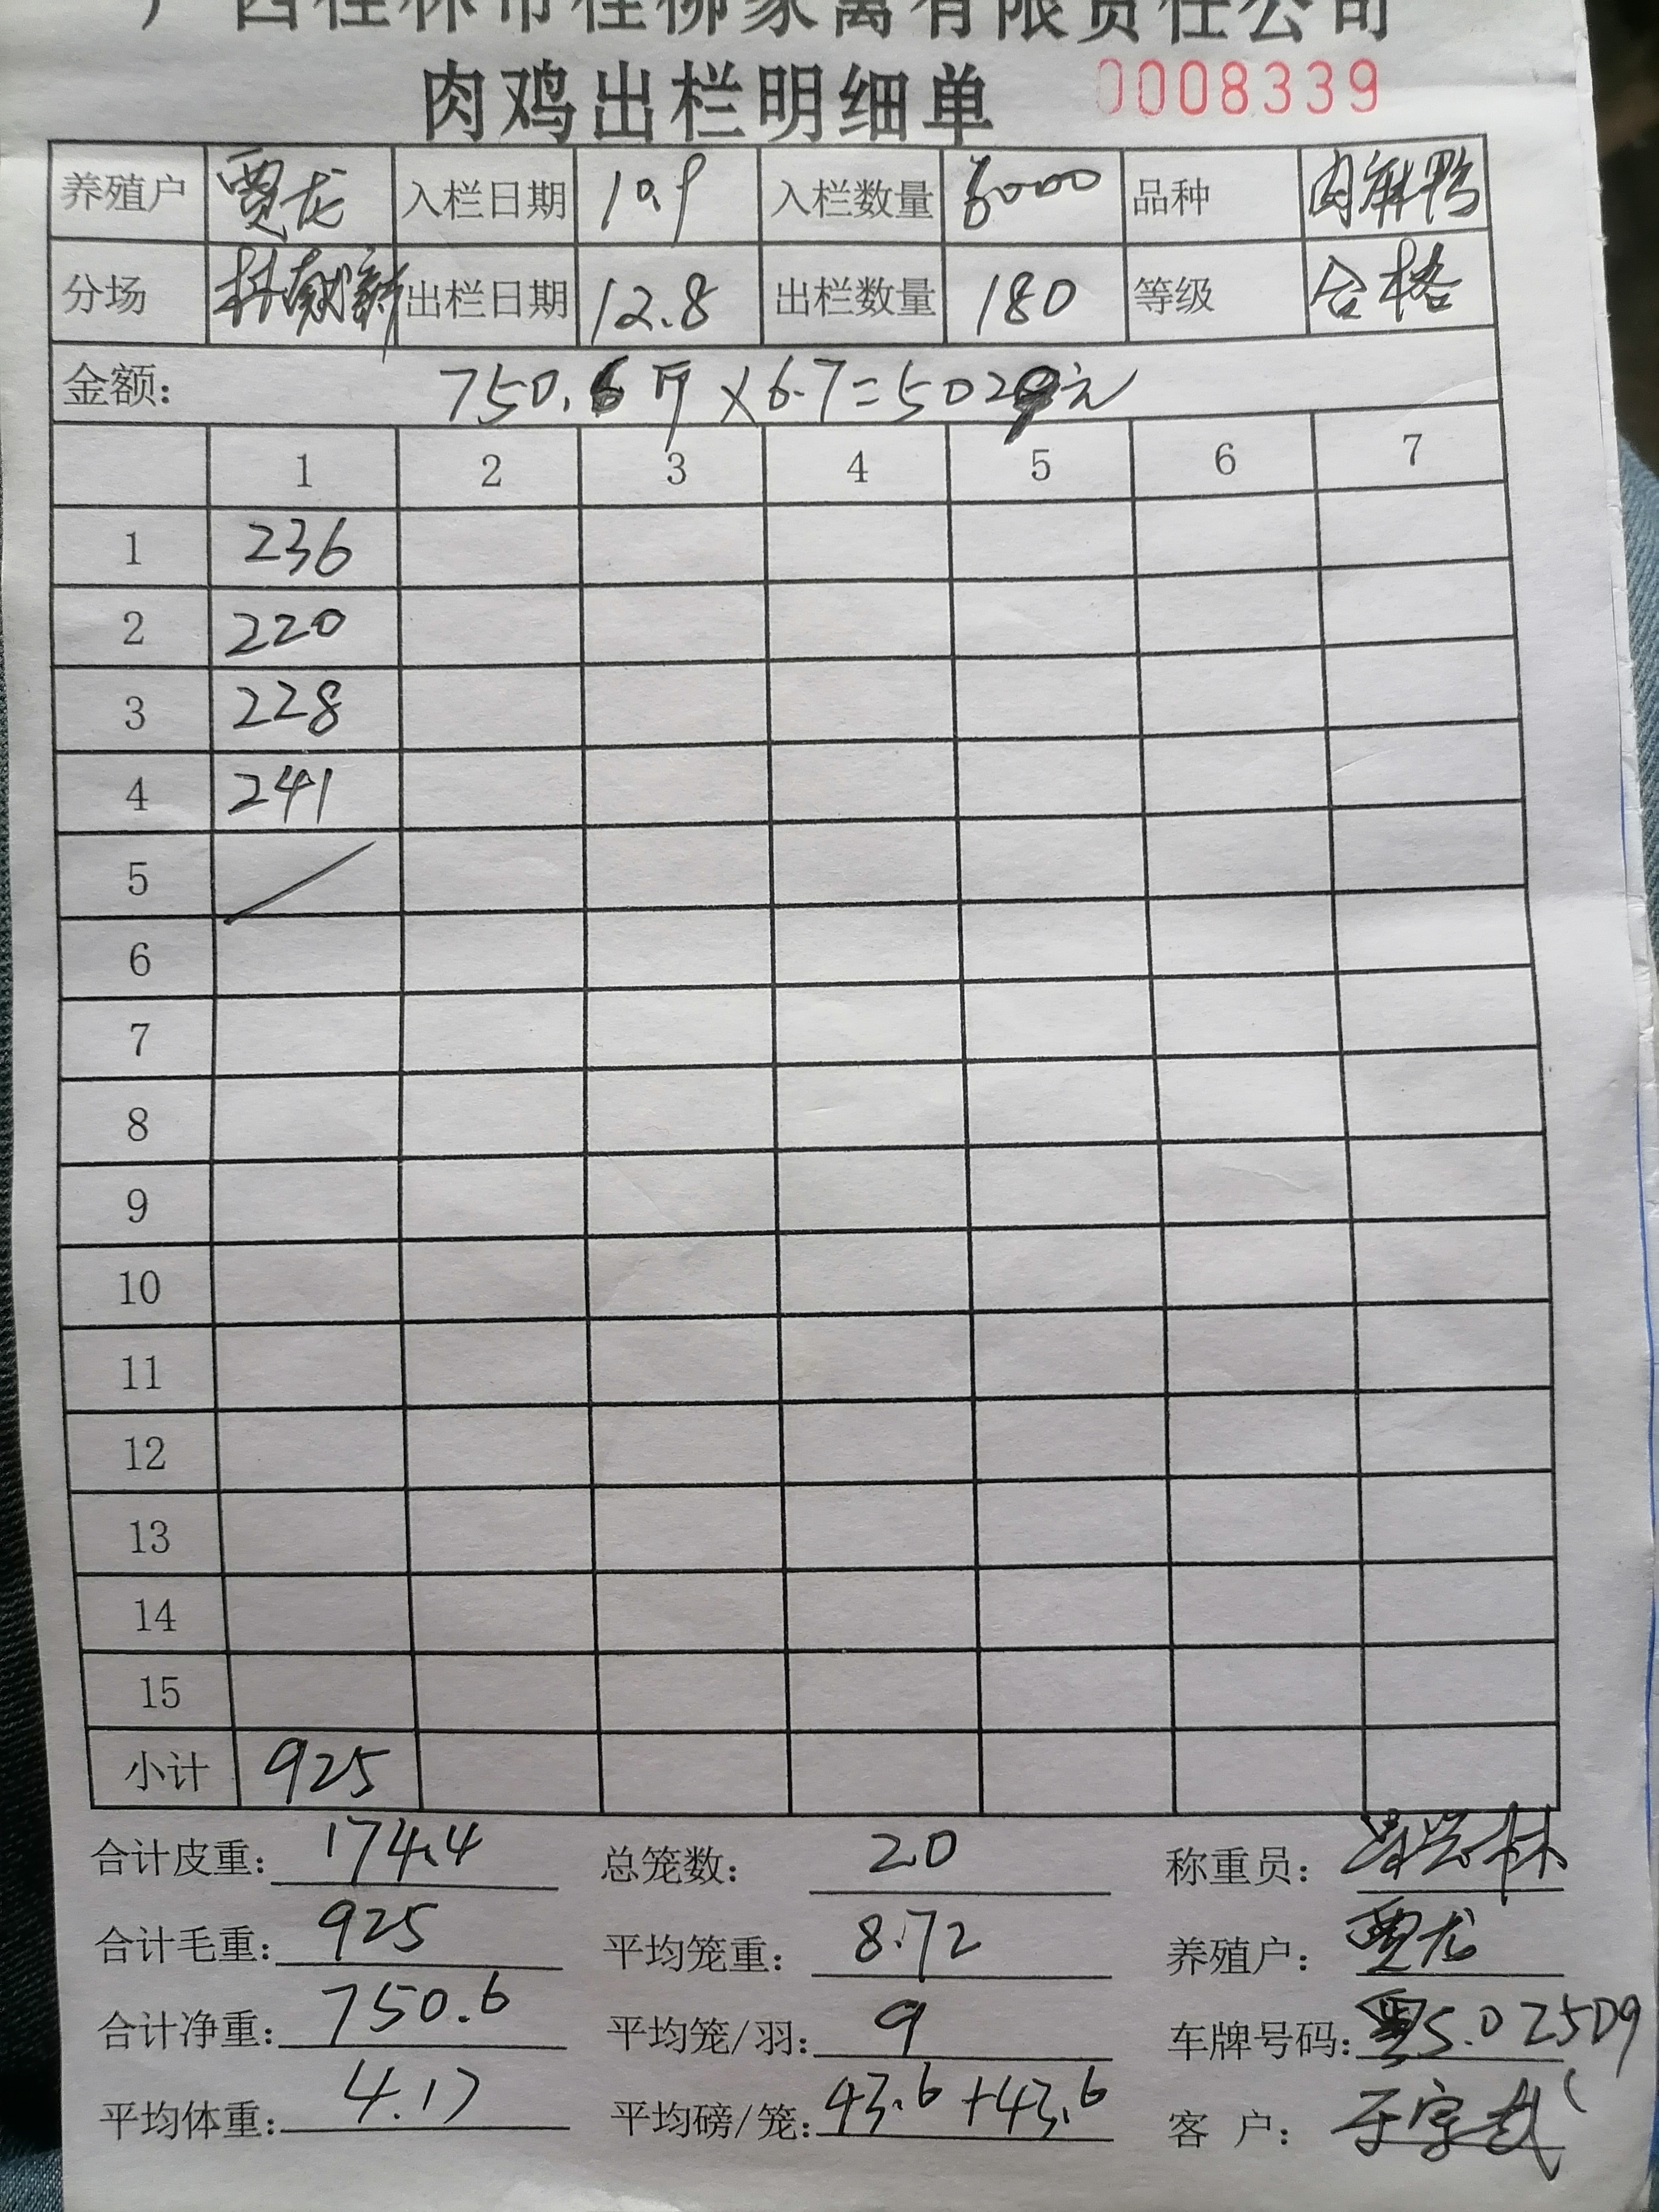 广西桂林市桂柳家禽有限责任公司
肉鸡出栏明细单 0008339
养殖户 贾龙 入栏日期 10.9 入栏数量 6000 品种 肉麻鸭
分场 出栏日期 12.8 出栏数量 180 等级 合格
金额： 750.6斤×6.7=5029元
1 2 3 4 5 6 7
1 236
2 220
3 228
4 241
5
6
7
8
9
10
11
12
13
14
15
小计 925
合计皮重： 174.4 总笼数： 20 称重员：
合计毛重： 925 平均笼重： 8.72 养殖户： 贾龙
合计净重： 750.6 平均笼/羽： 9 车牌号码： S.025D9
平均体重： 4.17 平均磅/笼： 43.6+43.6 客 户：